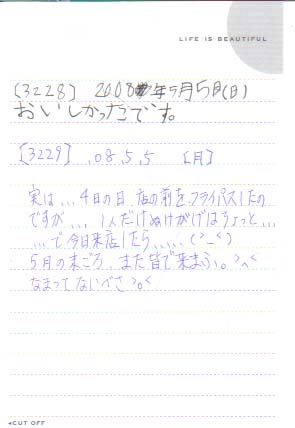 LIFE IS BEAUTIFUL
〔3228〕 2008年5月5日(日)
おいしかったです。
〔3229〕 .08.5.5 〔月〕
実は... 4日の日、店の前をフライパスしたの
ですが... 1人だけぬけがけはちょっと...
...で今日来店したら.....
5月の末ごろ、また皆で来まふ。
なまってないべさ
◂CUT OFF